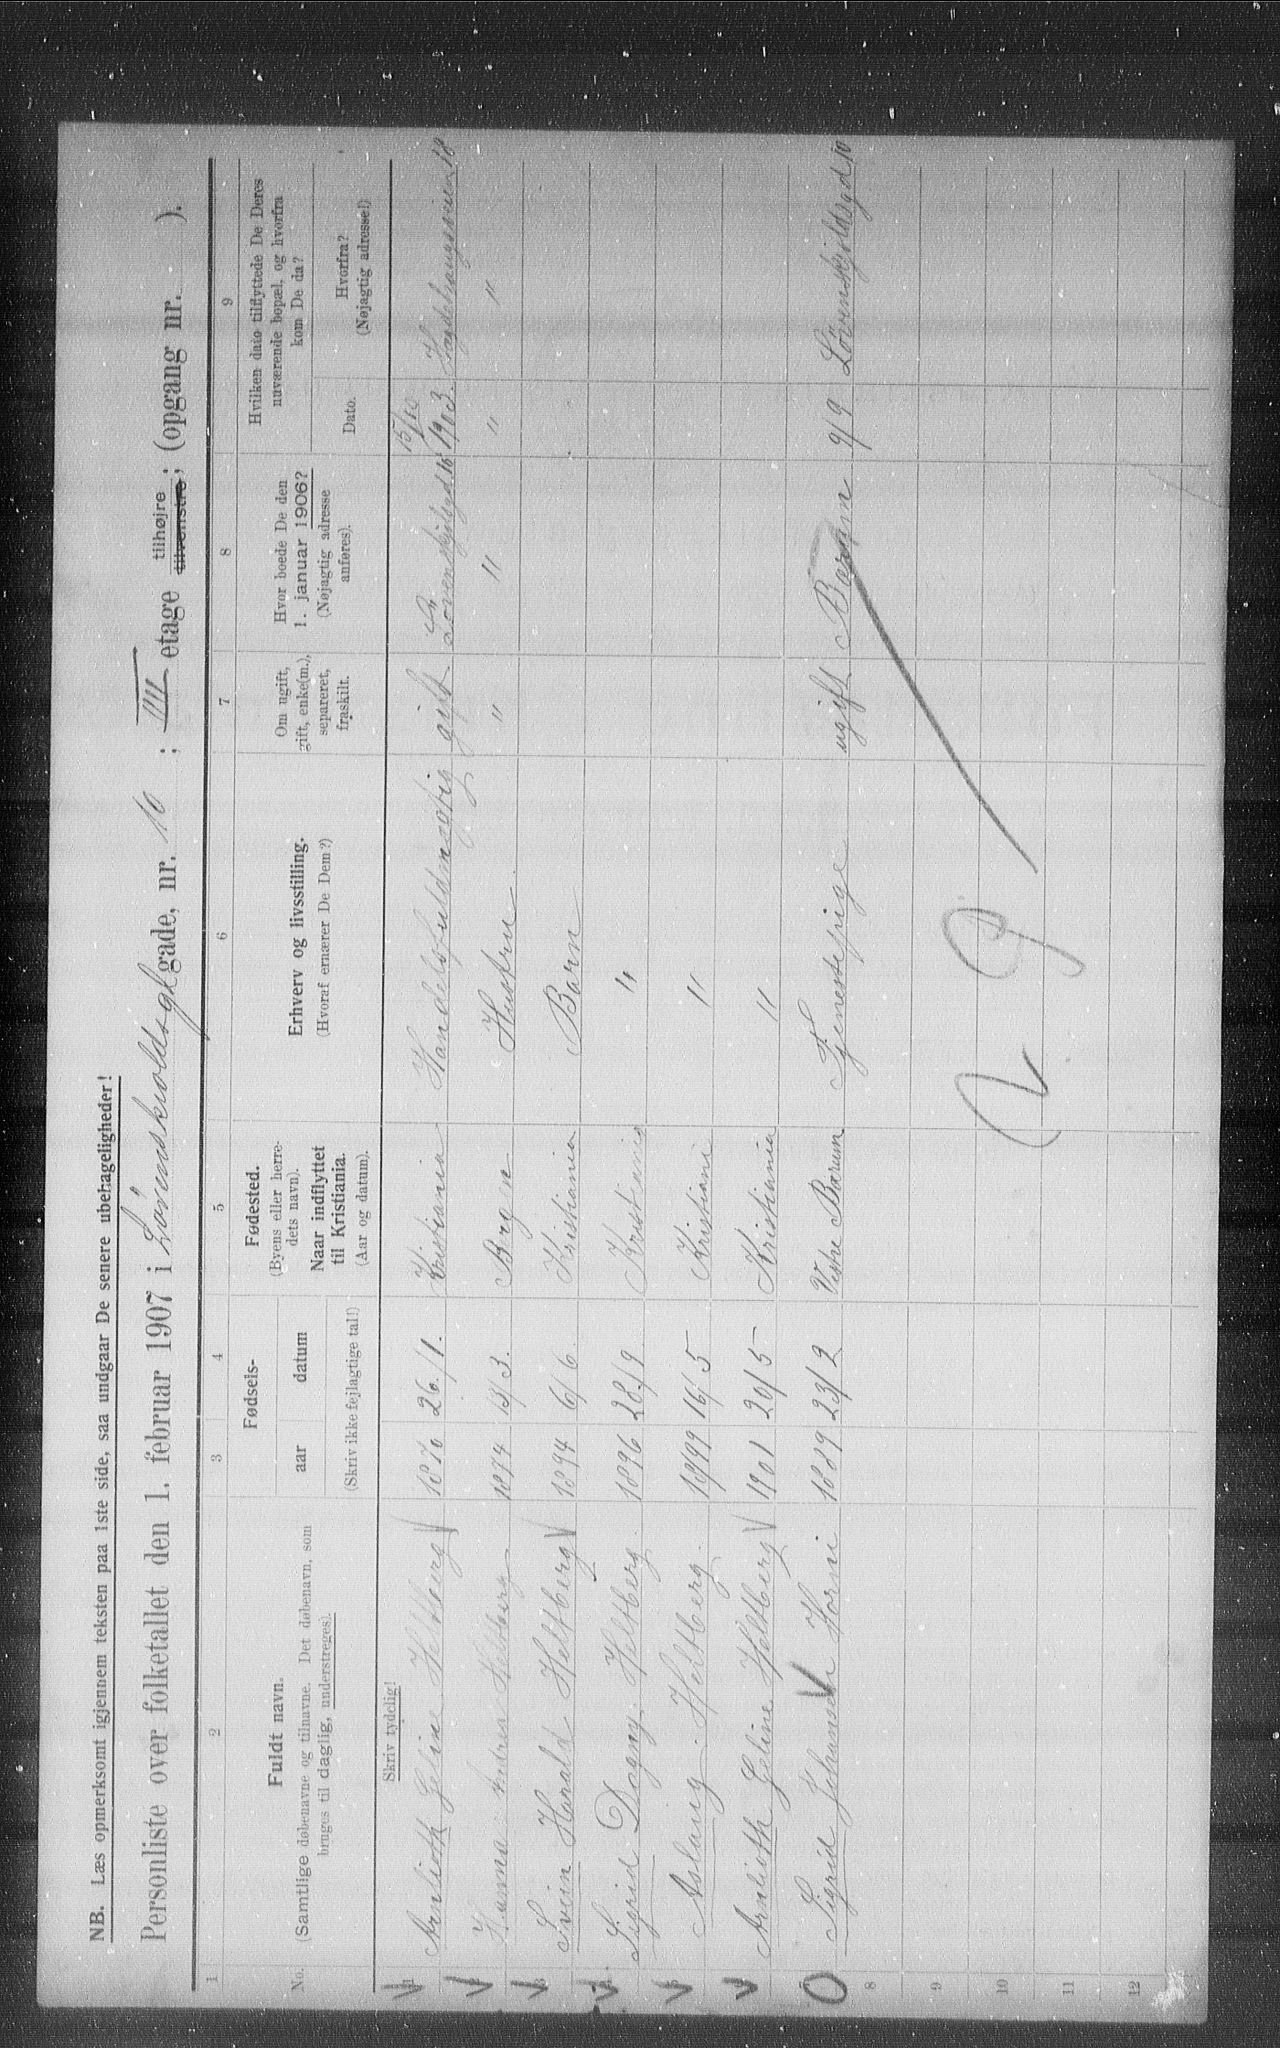 NB. Læs opmerksomt igjennem teksten paa 1ste side, saa undgaar De senere ubehageligheder!
Personliste over folketallet den 1. februar 1907 i Løvenskioldsgt gade, nr. 10 ; IIII etage tilhøjre tilvenstre; (opgang nr. ).
1 2 3 4 5 6 7 8 9
No.
Fuldt navn.
(Samtlige døbenavne og tilnavne. Det døbenavn, som
bruges til daglig, understreges).
Fødsels-
aar datum
(Skriv ikke fejlagtige tal!)
Fødested.
(Byens eller herre-
dets navn).
Naar indflyttet
til Kristiania.
(Aar og datum).
Erhverv og livsstilling.
(Hvoraf ernærer De Dem?)
Om ugift,
gift, enke(m.),
separeret,
fraskilt.
Hvor boede De den
1. januar 1906?
(Nøjagtig adresse
anføres).
Hvilken dato tilflyttede De Deres
nuværende bopæl, og hvorfra
kom De da?
Dato.
Hvorfra?
(Nøjagtig adresse!)
Skriv tydelig!
1 Arnlioth Geline Heltberg 1870 26/1. Kristiania Handelsfuldmægtig gift Løvenskjoldsgd 10 15/10 1903.
Hanna Andrea Heltberg 1874 13/3. Hustru " " " "
3 Svein Harald Heltberg 1894 6/6. Kristiania Barn
4 Sigrid Dagny Heltberg. 1896 28/9 Kristiania "
5 Aslaug Heltberg. 1899 16/5 Kristiani "
Arnlioth Geline Heltberg 1901 20/5 Kristiania "
Sigrid Johansen Horni 1889 23/2 Vestre Bærum Tjenestepige ugift Bærum 9/9 Løvenskjoldsgd 10
8
9
10
11
12